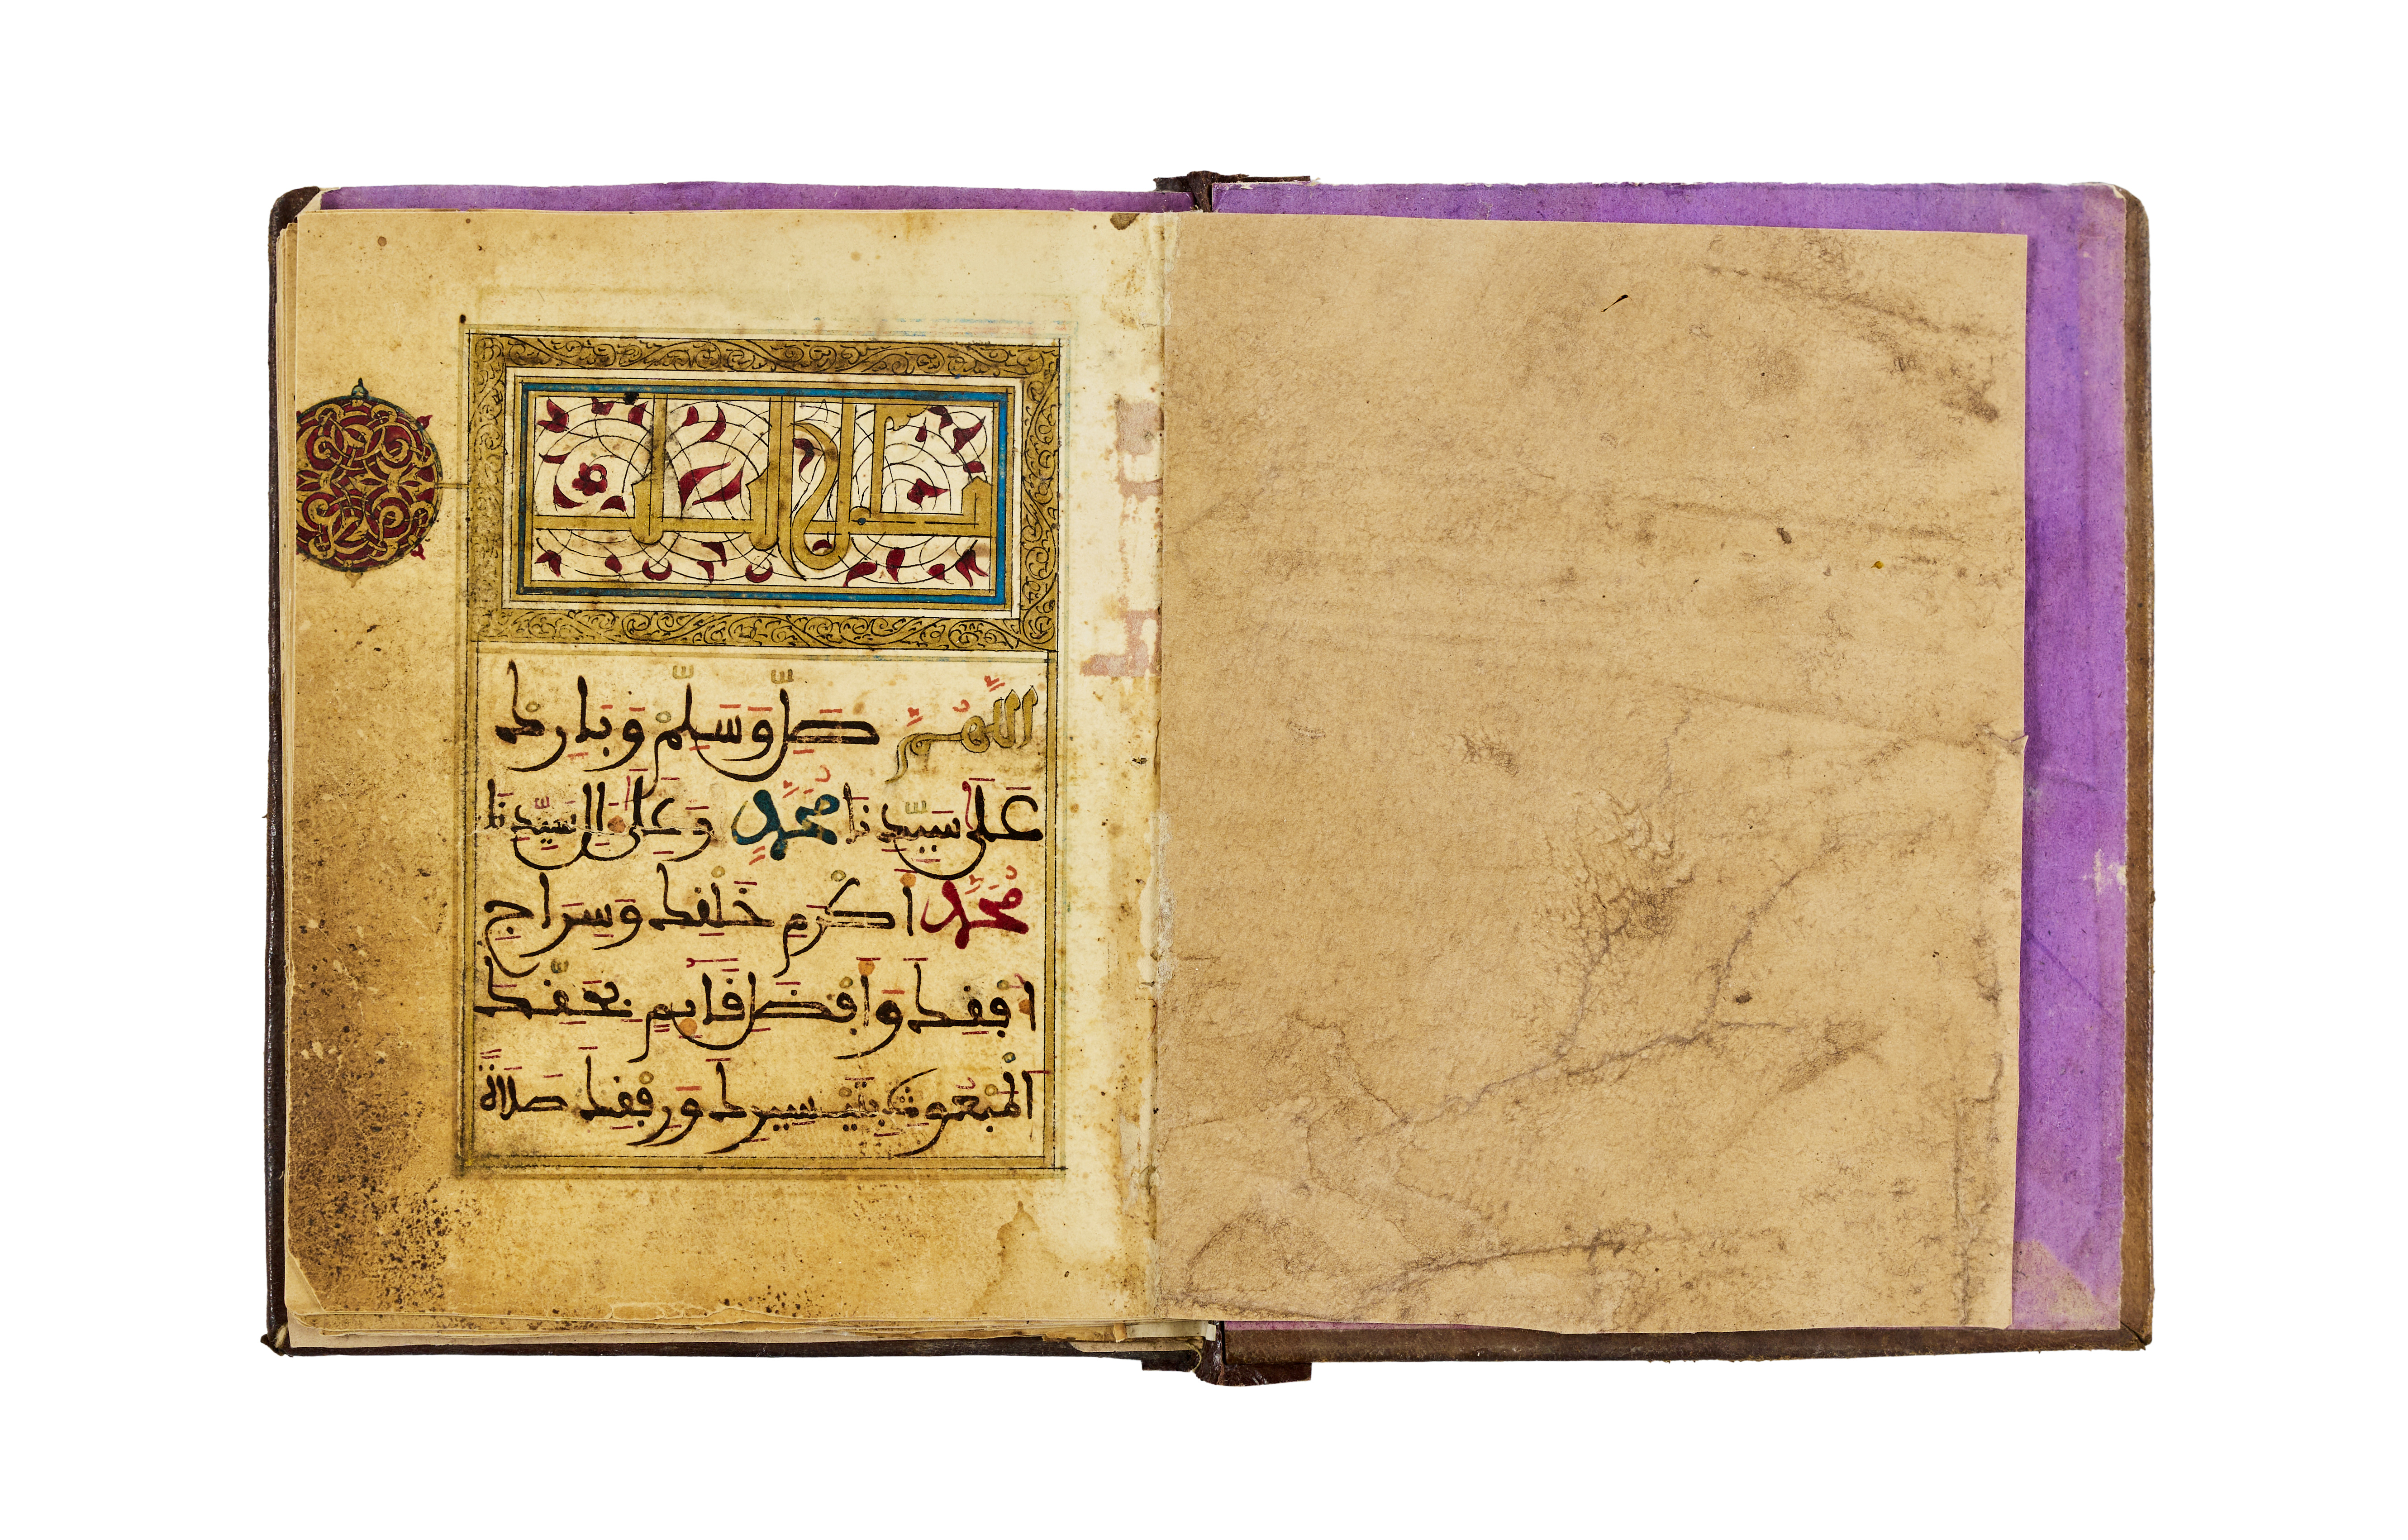 اللَّهُمَّ صَلِّ وَسَلِّمْ وَبَارِكْ
عَلَى سَيِّدِنَا مُحَمَّدٍ وَعَلَى ءَالِ سَيِّدِنَا
مُحَمَّدٍ أَكْرَمِ خَلْقِكَ وَسِرَاجِ
أُفْقِكَ وَأَفْضَلِ قَائِمٍ بِحَقِّكَ
الْمَبْعُوثِ بِتَيْسِيرِكَ وَرِفْقِكَ صَلَاةً